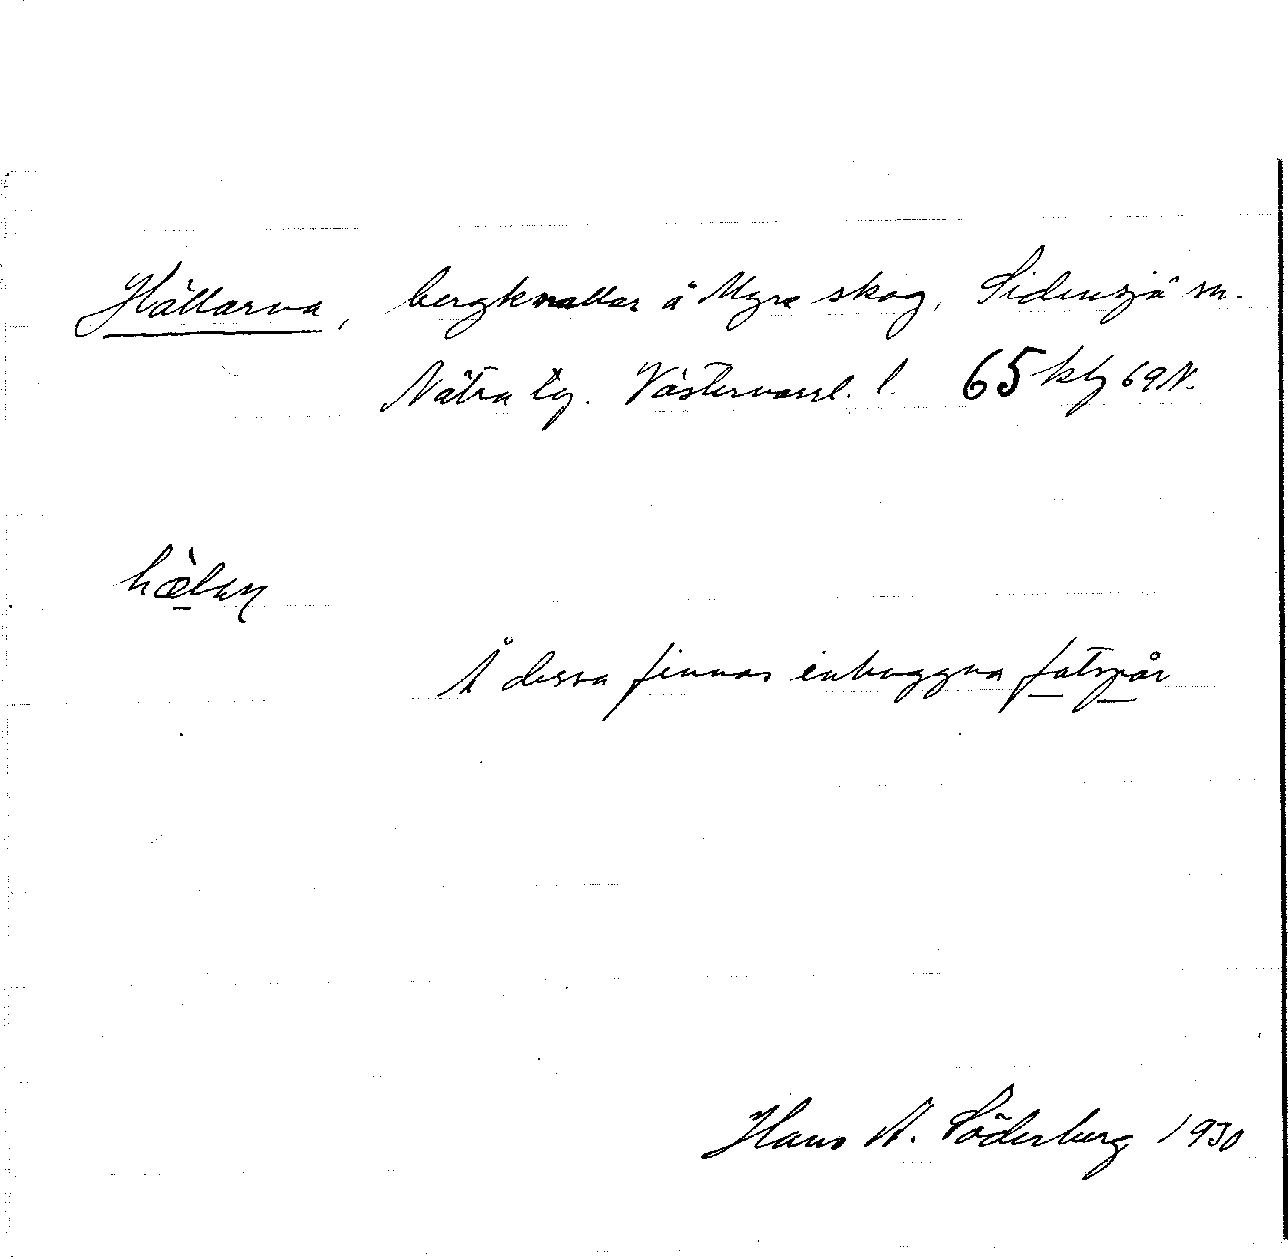 Hällarna, bergknallar å Myre skog, Sidensjö sn.
Nätra tg. Västernorrl. l. 65 kbl 69 N.
hæ̀lan
Å dessa finnas inhuggna fotspår
Hans A. Söderberg 1930